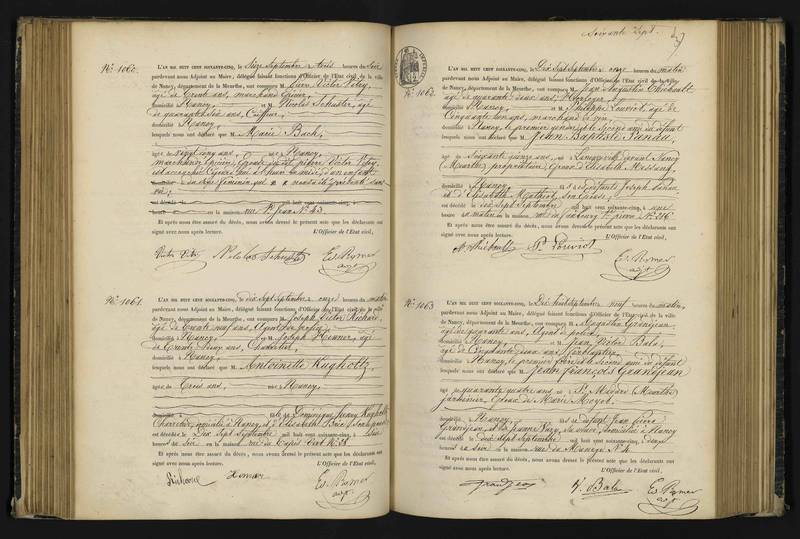 Soixante Sept. 67
No. 1060.
L'AN MIL HUIT CENT SOIXANTE-CINQ, le Seize Septembre à trois heures du soir
pardevant nous Adjoint au Maire, délégué faisant fonctions d'Officier de l'Etat civil de la ville
de Nancy, département de la Meurthe, ont comparu M. Pierre Victor
âgé de trente ans, marchand Epicier,
domicilié à Nancy, et M. Nicolas Schuster, âgé
de quarante six ans, Coiffeur,
domicilié à Nancy,
lesquels nous ont déclaré que M. Marie Bach,
âgée de vingt cinq ans, née Nancy,
marchande épicière, Epouse du dit Pierre Victor
est accouchée d'un enfant
du sexe féminin, qui présenté sans
vie;
mil huit cent soixante-cinq, à
en la maison rue St. Jean No. 43
Et après nous être assuré du décès, nous avons dressé le présent acte que les déclarants ont
signé avec nous après lecture. L'Officier de l'Etat civil,
Es. Rymer
adjt
No. 1061.
L'AN MIL HUIT CENT SOIXANTE-CINQ, le dix sept Septembre à onze heures du matin
pardevant nous Adjoint au Maire, délégué faisant fonctions d'Officier de l'Etat civil de la ville
de Nancy, département de la Meurthe, ont comparu M. Joseph Victor Richard,
âgé de trente neuf ans, Agent de police,
domicilié à Nancy, et M. Joseph Hemer, âgé
de trente deux ans,
domicilié à Nancy,
lesquels nous ont déclaré que M. Antoinette Kugholtz
âgée de Trois ans, née Nancy,
fille de Dominique Henry Kugholtz
domicilié à Nancy, et d'Elisabeth son épouse
est décédée le Dix Sept Septembre mil huit cent soixante-cinq, à
heures du soir en la maison rue
Et après nous être assuré du décès, nous avons dressé le présent acte que les déclarants ont
signé avec nous après lecture. L'Officier de l'Etat civil,
Richard Hemer Es. Rymer
adjt
No. 1062.
L'AN MIL HUIT CENT SOIXANTE-CINQ, le Dix Sept Septembre à onze heures du matin
pardevant nous Adjoint au Maire, délégué faisant fonctions d'Officier de l'Etat civil de la ville
de Nancy, département de la Meurthe, ont comparu M. Jean Augustin Thiébault
âgé de quarante deux ans, Horloger
domicilié à Nancy, et M. Philippe Louviot, âgé de
Cinquante ans, marchand
domicilié à Nancy, le premier gendre et le second ami du défunt
lesquels nous ont déclaré que M. Jean Baptiste
âgé de Soixante quinze ans, né à devant Nancy
(Meurthe) propriétaire, Epoux d'Elisabeth
domicilié à Nancy, fils des défunts Joseph
et d'Elisabeth son épouse;
est décédé le dix sept Septembre mil huit cent soixante-cinq, à une
heure du matin en la maison rue du faubourg St. pierre No. 216
Et après nous être assuré du décès, nous avons dressé le présent acte que les déclarants ont
signé avec nous après lecture. L'Officier de l'Etat civil,
A. Thiébault Ph. Louviot
Es. Rymer
adjt
No. 1063
L'AN MIL HUIT CENT SOIXANTE-CINQ, le Dix huit Septembre à neuf heures du matin,
pardevant nous Adjoint au Maire, délégué faisant fonctions d'Officier de l'Etat civil de la ville
de Nancy, département de la Meurthe, ont comparu M. Augustin Grandjean,
âgé de quarante ans, Agent de police,
domicilié à Nancy, et M. Jean Victor Bala,
âgé de Cinquante deux ans, ferblantier,
domicilié à Nancy, le premier frère et le second ami du défunt
lesquels nous ont déclaré que M. Jean François Grandjean
âgé de quarante quatre ans, né à St. Médard (Meurthe)
jardinier, Epoux de Marie
domicilié à Nancy, fils de défunt Jean pierre
Grandjean, et de Jeanne sa veuve, domiciliée à Nancy
est décédé le dix sept Septembre mil huit cent soixante-cinq, à deux
heures du soir en la maison rue du Manège No. 4
Et après nous être assuré du décès, nous avons dressé le présent acte que les déclarants ont
signé avec nous après lecture. L'Officier de l'Etat civil,
Grandjean V. Bala Es. Rymer
adjt